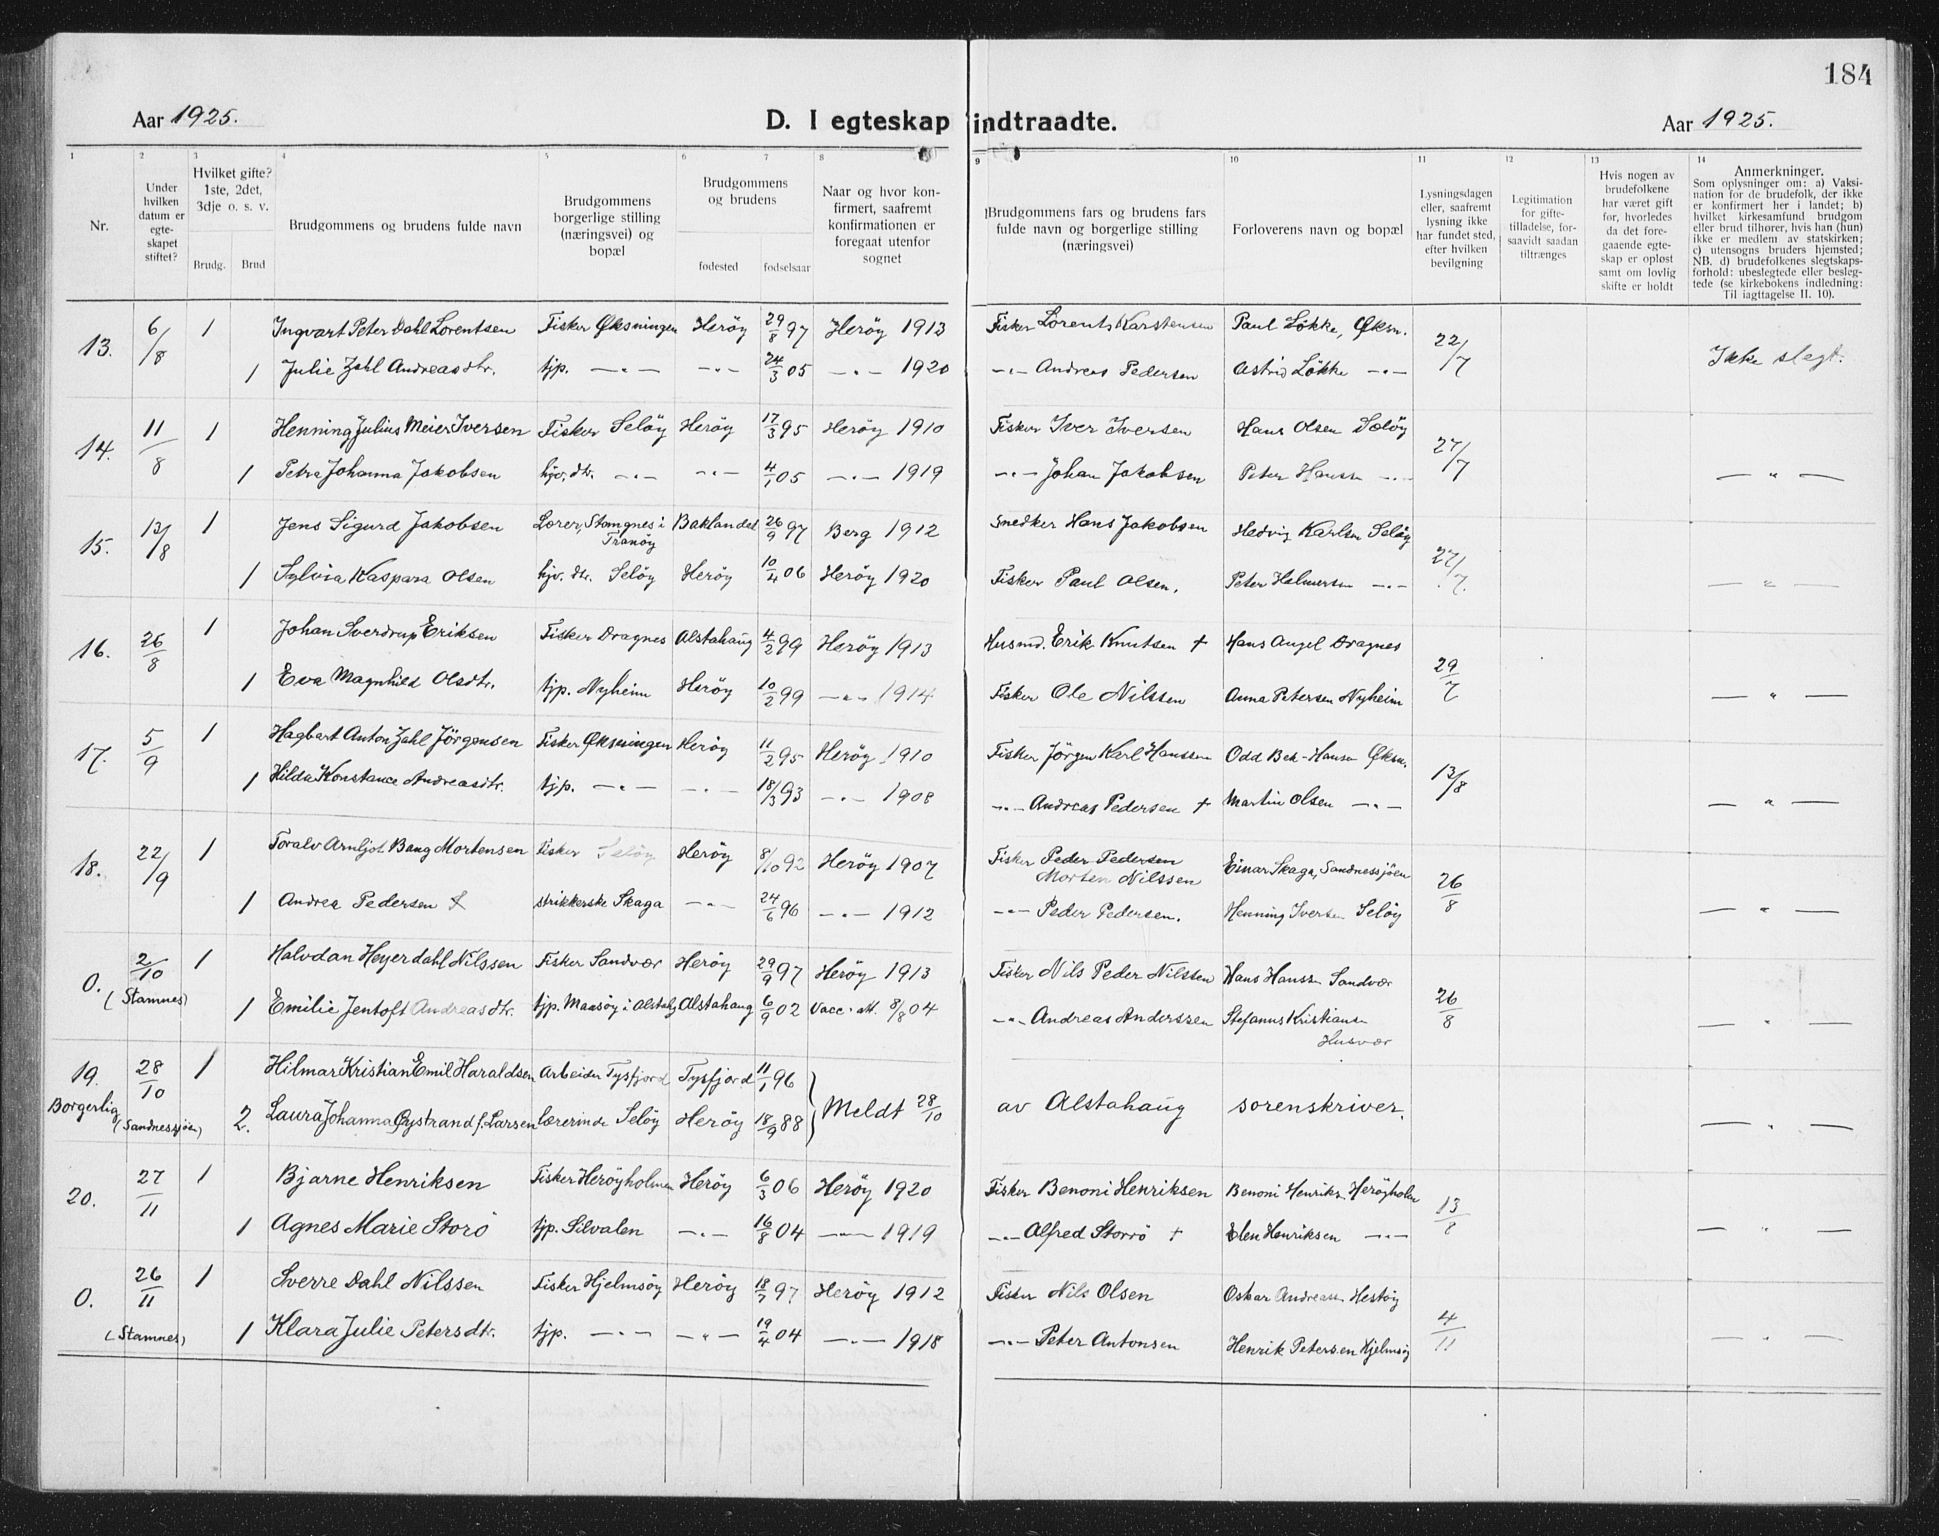 184
Aar 1925. D. I egteskap indtraadte. Aar 1925.
1 2 3 4 5 6 7 8 9 10 11 12 13 14
Nr.
Under hvilken datum er egte-skapet stiftet?
Hvilket gifte? 1ste, 2det, 3dje o. s. v.
Brudg. Brud
Brudgommens og brudens fulde navn
Brudgommens borgerlige stilling (næringsvei) og bopæl
Brudgommens og brudens
fødested fødselsaar
Naar og hvor kon-firmert, saafremt konfirmationen er foregaat utenfor sognet
Brudgommens fars og brudens fars fulde navn og borgerlige stilling (næringsvei)
Forloverens navn og bopæl
Lysningsdagen eller, saafremt lysning ikke har fundet sted, efter hvilken bevilgning
Legitimation for gifte-tilladelse, for-saavidt saadan tiltrænges
Hvis nogen av brudefolkene har været gift før, hvorledes da det fore-gaaende egte-skap er opløst samt om lovlig skifte er holdt
Anmerkninger.
Som oplysninger om: a) Vaksi-nation for de brudefolk, der ikke er konfirmert her i landet; b) hvilket kirkesamfund brudgom eller brud tilhører, hvis han (hun) ikke er medlem av statskirken; c) utensogns bruders hjemsted; NB. d) brudefolkenes slegtskaps-forhold: ubeslegtede eller besleg-tede (se kirkebokens indledning: Til iagttagelse II. 10).
13. 6/8 1 Ingvart Peter Dahl Lorentsen Fisker Øksningen Herøy 29/8 97 Herøy 1913 Fisker Lorents Karstensen Paul Løkke, Øksn. 22/7
1 Julie Zahl Andreasdtr. tjp. —"— —"— 24/3 05 —"— 1920 —"— Andreas Pedersen Astrid Løkke —"— Ikke slegt.
14. 11/8 1 Henning Julius Meier Iversen Fisker Seløy Herøy 17/3 95 Herøy 1910 Fisker Iver Iversen Hans Olsen Seløy 27/7
1 Petra Johanna Jakobsen hjv. dtr. —"— —"— 4/1 05 —"— 1919 —"— Johan Jakobsen Peter Hanssn —"— — " —
15. 13/8 1 Jens Sigurd Jakobsen Lærer, Stangnes i Tranöy Baklandet 26/9 97 Berg 1912 Snedker Hans Jakobsen Hedvig Karlsen Seløy 27/7.
1 Sylvia Kaspara Olsen hjv. dtr. Seløy Herøy 10/4 06 Herøy 1920 Fisker Paul Olsen. Peter Helmersen —"— — " —
16. 26/8 1 Johan Sverdrup Eriksen Fisker Dragnes Alstahaug 4/2 99 Herøy 1913 Husmd. Erik Knutsen + Hans Angel Dragnes 29/7
1 Eva Magnhild Olsdtr. tjp. Nyheim Herøy 10/2 99 —"— 1914 Fisker Ole Nilssen Anna Petersen Nyheim — " —
17. 5/9 1 Hagbart Anton Zahl Jörgensen Fisker Øksningen Herøy 11/2 95 Herøy 1910 Fisker Jörgen Karl Hanssen Odd Bek-Hansen Øksn. 13/8
1 Hilda Konstance Andreasdtr. tjp. —"— —"— 18/3 93 —"— 1908 —"— Andreas Pedersen + Martin Olsen —"— — " —
18. 22/9 1 Toralv Arnljot Bang Mortensen Fisker Seløy Herøy 8/10 92 Herøy 1907 Fisker Peder Pedersen Morten Nilssen Einar Skaga, Sandnessjöen 26/8
1 Andrea Pedersen strikkerske Skaga —"— 24/6 96 —"— 1912 —"— Peder Pedersen. Henning Iversen Seløy — " —
0. 2/10 1 Halvdan Heyerdahl Nilssen Fisker Sandvær Herøy 29/9 97 Herøy 1913 Fisker Nils Peder Nilssen Hans Hanssn Sandvær 26/8
(Stamnes) 1 Emilie Jentoft Andreasdtr. tjp. Maasöy i Alstahg Alstahaug 6/9 02 Vacc. att. 8/8 04 —"— Andreas Anderssen Stefanus Kristiansn Husvær — " —
19. 28/10 1 Hilmar Kristian Emil Haraldsen Arbeider Tysfjord Tysfjord 11/1 96
Borgerlig (Sandnessjöen) 2. Laura Johanna Øystrand f. Larsen lærerinde Seløy Herøy 18/9 88 } Meldt 28/10 av Alstahaug sorenskriver. — " —
20. 27/11 1 Bjarne Henriksen Fisker Herøyholmen Herøy 6/3 06 Herøy 1920 Fisker Benoni Henriksen Benoni Henriks. Herøyholm 13/8
1 Agnes Marie Storö tjp. Silvalen —"— 16/8 04 —"— 1919 —"— Alfred Storrö + Elen Henriksen —"— — " —
0. 26/11 1 Sverre Dahl Nilssen Fisker Hjelmsöy Herøy 18/7 97 Herøy 1912 Fisker Nils Olsen Oskar Andreassn Hestöy 4/11
(Stamnes) 1 Klara Julie Petersdtr. tjp. —"— —"— 19/4 04 —"— 1918 —"— Peter Antonsen Henrik Petersen Hjelmsöy — " —